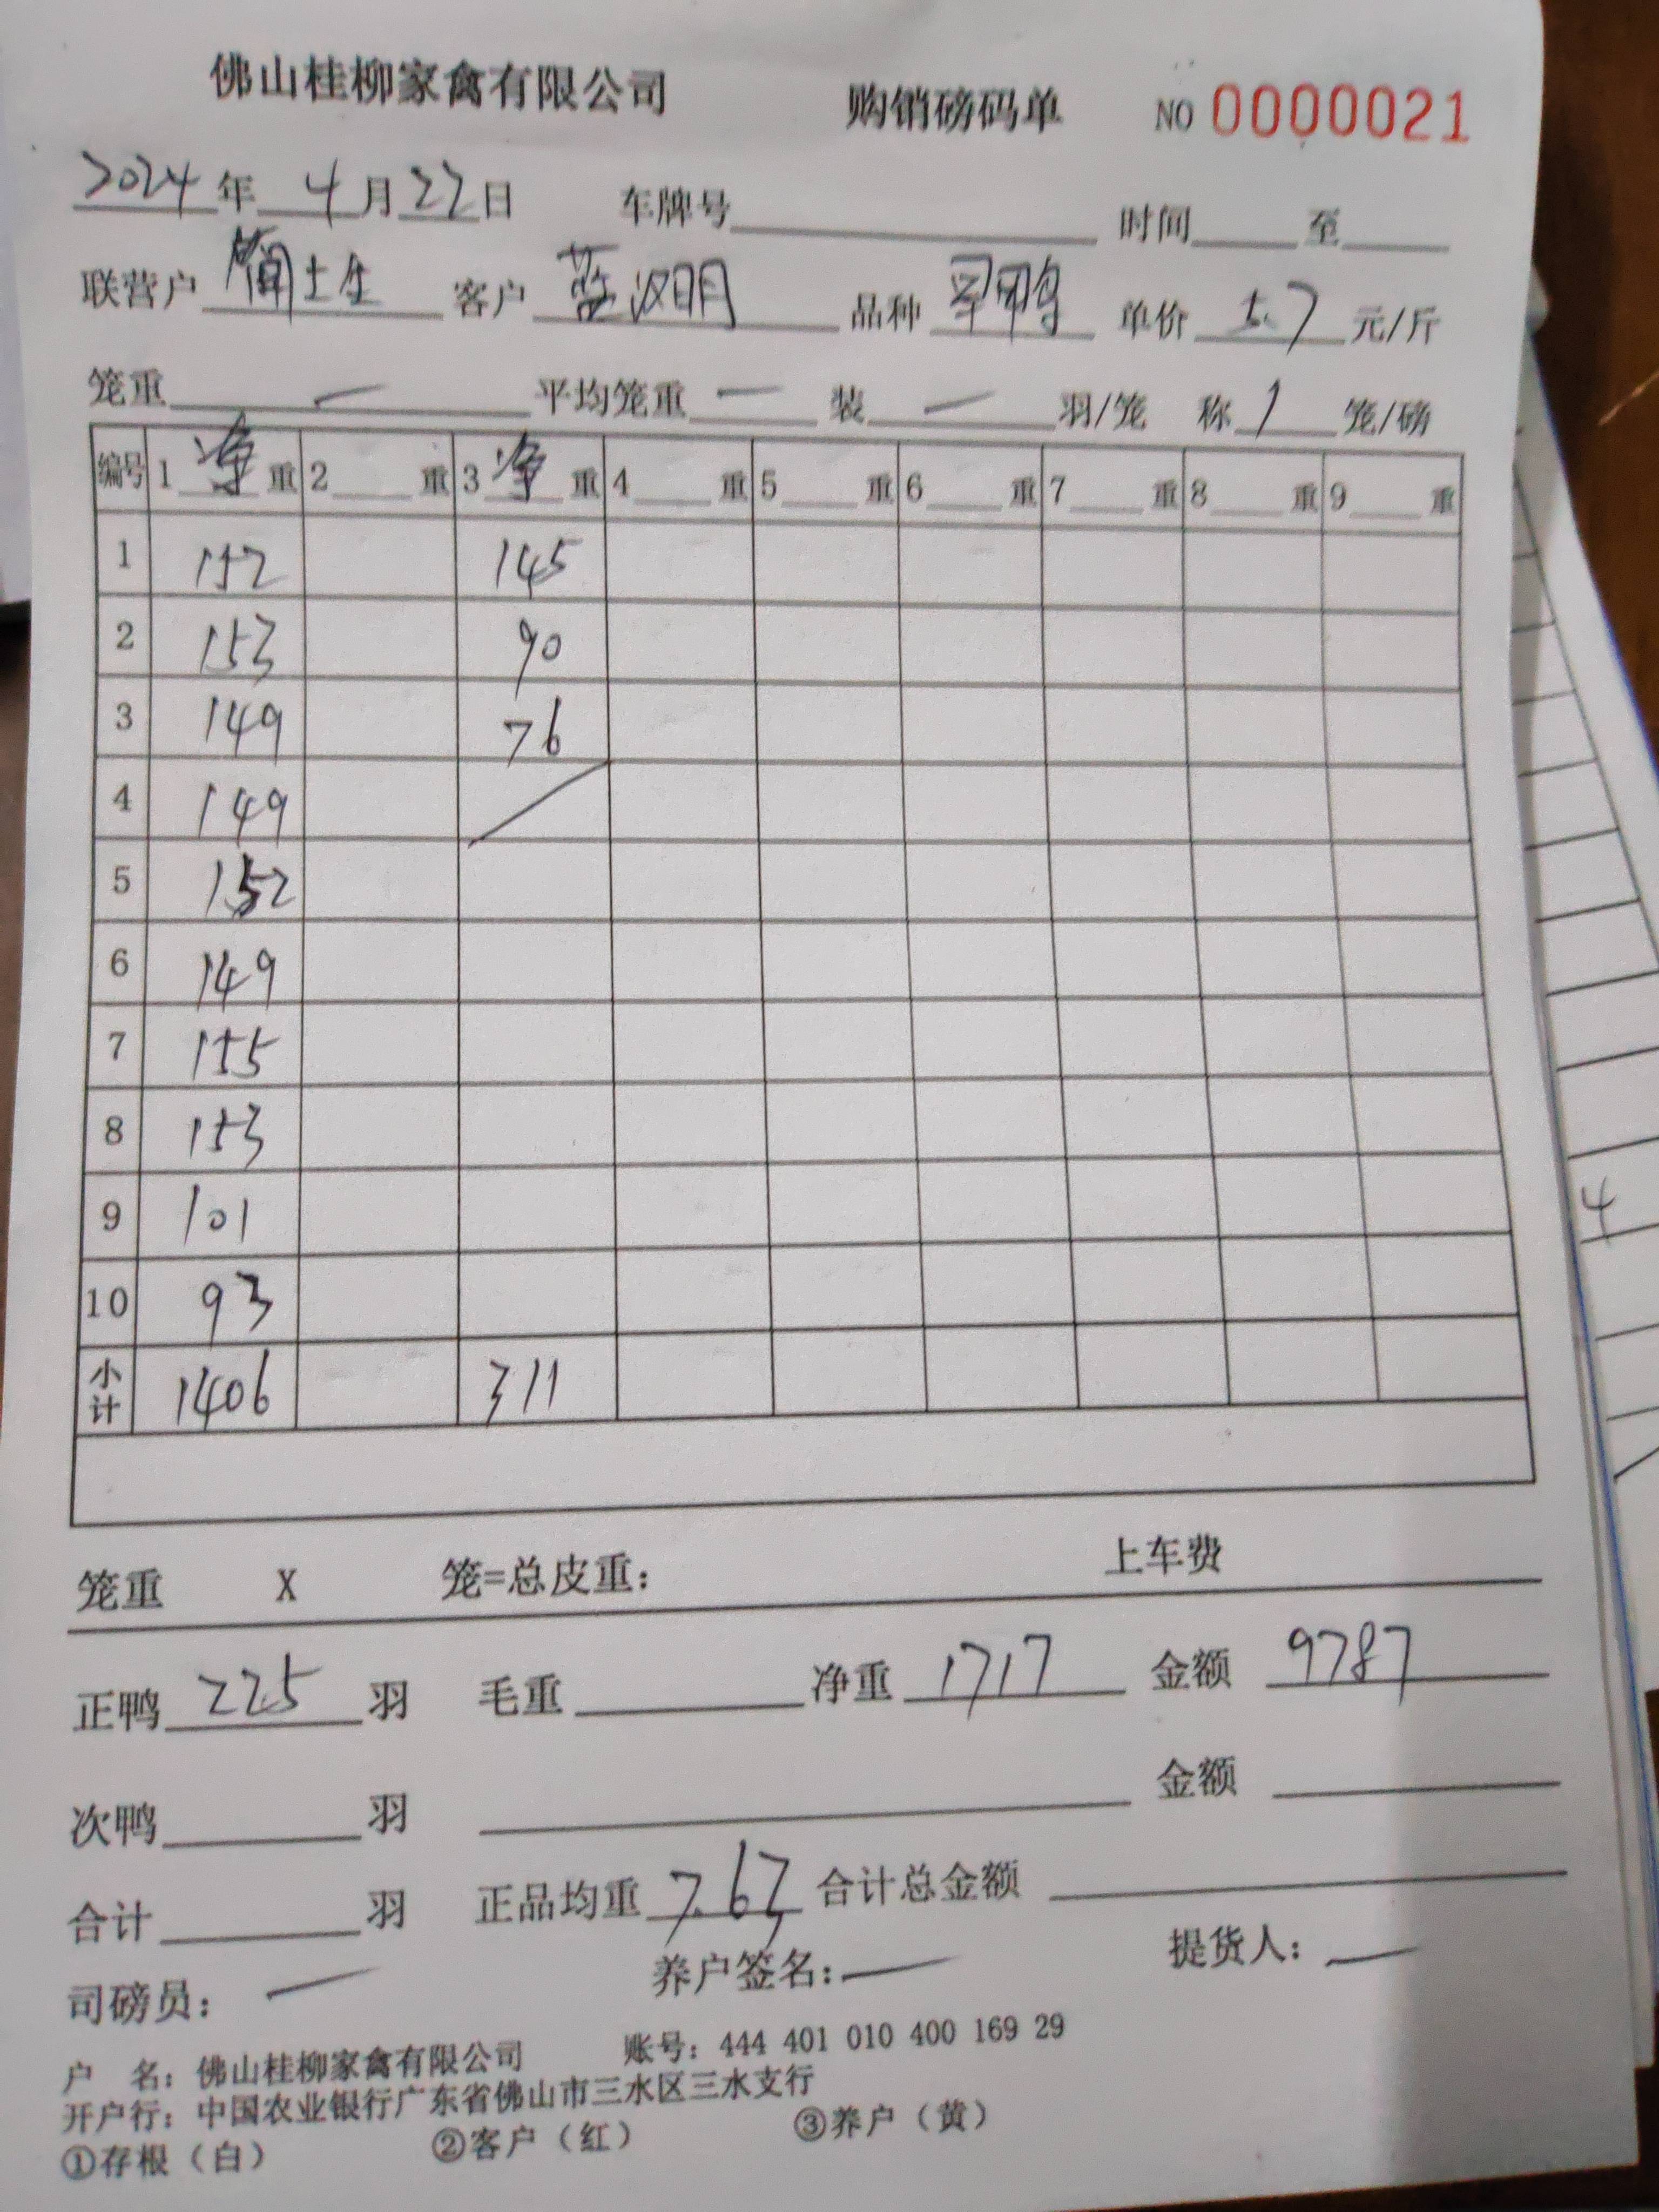 佛山桂柳家禽有限公司 购销磅码单 NO 0000021
2024年 4月22日 车牌号 时间 至
联营户 简士生 客户 蓝汉明 品种 鸭 单价 5.7 元/斤
笼重 — 平均笼重 — 装 — 羽/笼 称 1 笼/磅
编号 1 净 重 2 重 3 净 重 4 重 5 重 6 重 7 重 8 重 9 重
1 152 145
2 153 90
3 149 76
4 149
5 152
6 149
7 155
8 153
9 101
10 93
小计 1406 311
笼重 X 笼=总皮重： 上车费
正鸭 225 羽 毛重 净重 1717 金额 9787
次鸭 羽 金额
合计 羽 正品均重 7.63 合计总金额
司磅员： — 养户签名： — 提货人： —
户 名：佛山桂柳家禽有限公司 账号：444 401 010 400 169 29
开户行：中国农业银行广东省佛山市三水区三水支行
①存根（白） ②客户（红） ③养户（黄）
4